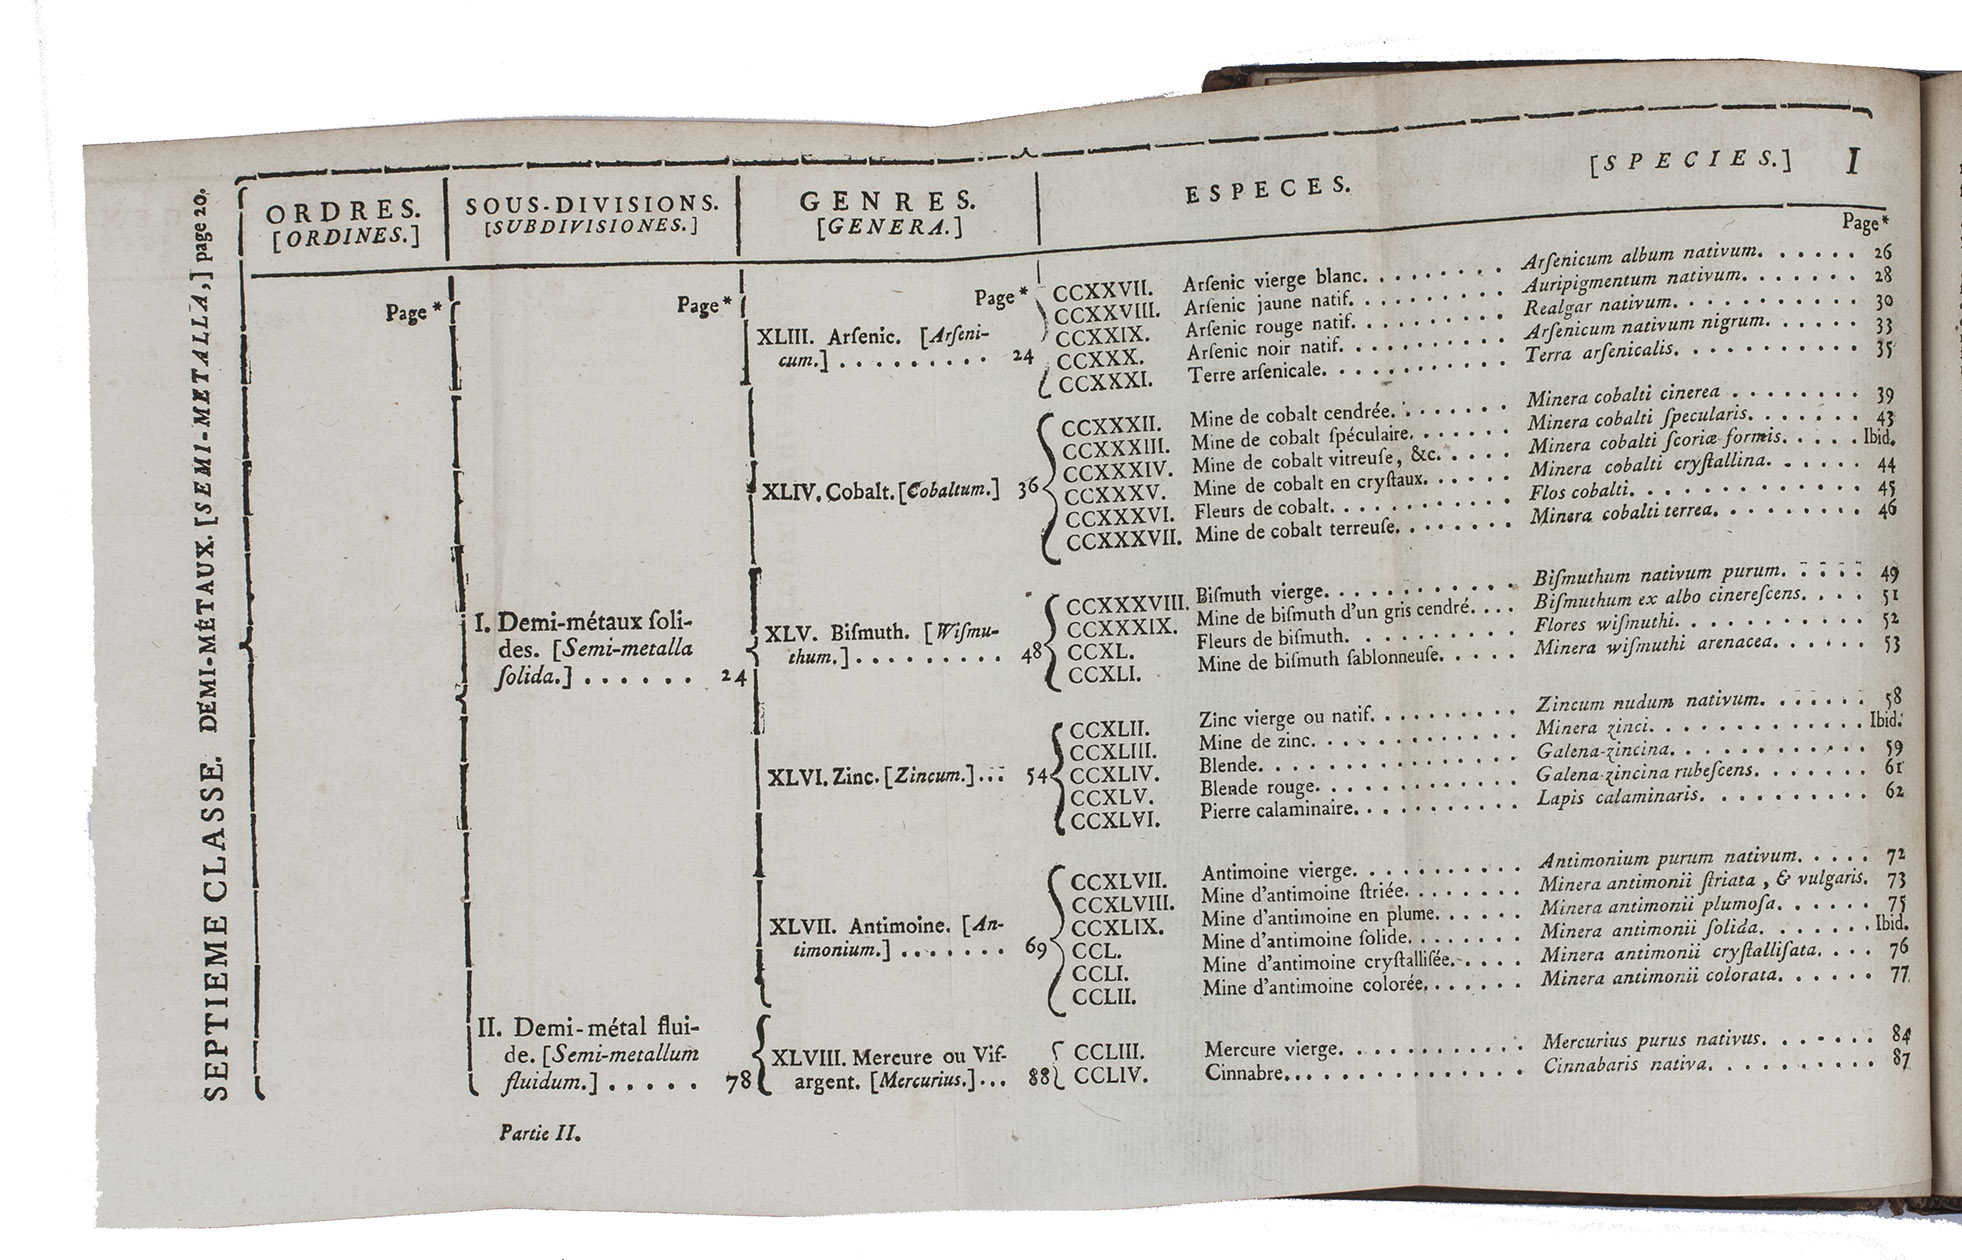 SEPTIEME CLASSE. DEMI-MÉTAUX. [SEMI-METALLA,] page 20.
ORDRES.
[ORDINES.]
Page *
SOUS-DIVISIONS.
[SUBDIVISIONES.]
Page *
I. Demi-métaux ſoli-
des. [Semi-metalla
ſolida.] . . . . . . 24
II. Demi-métal flui-
de. [Semi-metallum
fluidum.] . . . . . 78
GENRES.
[GENERA.]
Page *
XLIII. Arſenic. [Arſeni-
cum.] . . . . . . . . . 24
XLIV. Cobalt. [Cobaltum.] 36
XLV. Biſmuth. [Wiſmu-
thum.] . . . . . . . . . 48
XLVI. Zinc. [Zincum.] . . . 54
XLVII. Antimoine. [An-
timonium.] . . . . . . . 69
XLVIII. Mercure ou Vif-
argent. [Mercurius.] . . . 88
ESPECES. [SPECIES.] I
Page *
CCXXVII. Arſenic vierge blanc. . . . . . . . . Arſenicum album nativum. . . . . . 26
CCXXVIII. Arſenic jaune natif. . . . . . . . . . Auripigmentum nativum. . . . . . . 28
CCXXIX. Arſenic rouge natif. . . . . . . . . . Realgar nativum. . . . . . . . . . . 30
CCXXX. Arſenic noir natif. . . . . . . . . . . Arſenicum nativum nigrum. . . . . . 33
CCXXXI. Terre arſenicale. . . . . . . . . . . . Terra arſenicalis. . . . . . . . . . . 35
CCXXXII. Mine de cobalt cendrée. . . . . . . . Minera cobalti cinerea . . . . . . . . 39
CCXXXIII. Mine de cobalt ſpéculaire. . . . . . . Minera cobalti ſpecularis. . . . . . . 43
CCXXXIV. Mine de cobalt vitreuſe, &c. . . . . Minera cobalti ſcoriæ formis. . . . . Ibid.
CCXXXV. Mine de cobalt en cryſtaux. . . . . . Minera cobalti cryſtallina. . . . . . 44
CCXXXVI. Fleurs de cobalt. . . . . . . . . . . Flos cobalti. . . . . . . . . . . . . 45
CCXXXVII. Mine de cobalt terreuſe. . . . . . . . Minera cobalti terrea. . . . . . . . . 46
CCXXXVIII. Biſmuth vierge. . . . . . . . . . . . Biſmuthum nativum purum. . . . . 49
CCXXXIX. Mine de biſmuth d'un gris cendré. . . . Biſmuthum ex albo cinereſcens. . . . 51
CCXL. Fleurs de biſmuth. . . . . . . . . . Flores wiſmuthi. . . . . . . . . . . 52
CCXLI. Mine de biſmuth ſablonneuſe. . . . . Minera wiſmuthi arenacea. . . . . . 53
CCXLII. Zinc vierge ou natif. . . . . . . . . Zincum nudum nativum. . . . . . . 58
CCXLIII. Mine de zinc. . . . . . . . . . . . Minera zinci. . . . . . . . . . . . . Ibid.
CCXLIV. Blende. . . . . . . . . . . . . . . Galena-zincina. . . . . . . . . . . 59
CCXLV. Blende rouge. . . . . . . . . . . . Galena-zincina rubeſcens. . . . . . . 61
CCXLVI. Pierre calaminaire. . . . . . . . . . Lapis calaminaris. . . . . . . . . . 62
CCXLVII. Antimoine vierge. . . . . . . . . . Antimonium purum nativum. . . . . 72
CCXLVIII. Mine d'antimoine ſtriée. . . . . . . . Minera antimonii ſtriata, & vulgaris. 73
CCXLIX. Mine d'antimoine en plume. . . . . . Minera antimonii plumoſa. . . . . . 75
CCL. Mine d'antimoine ſolide. . . . . . . . Minera antimonii ſolida. . . . . . . . Ibid.
CCLI. Mine d'antimoine cryſtalliſée. . . . . Minera antimonii cryſtalliſata. . . . 76
CCLII. Mine d'antimoine colorée. . . . . . . Minera antimonii colorata. . . . . . 77
CCLIII. Mercure vierge. . . . . . . . . . . Mercurius purus nativus. . . . . . . 84
CCLIV. Cinnabre. . . . . . . . . . . . . . . Cinnabaris nativa. . . . . . . . . . . 87
Partie II.